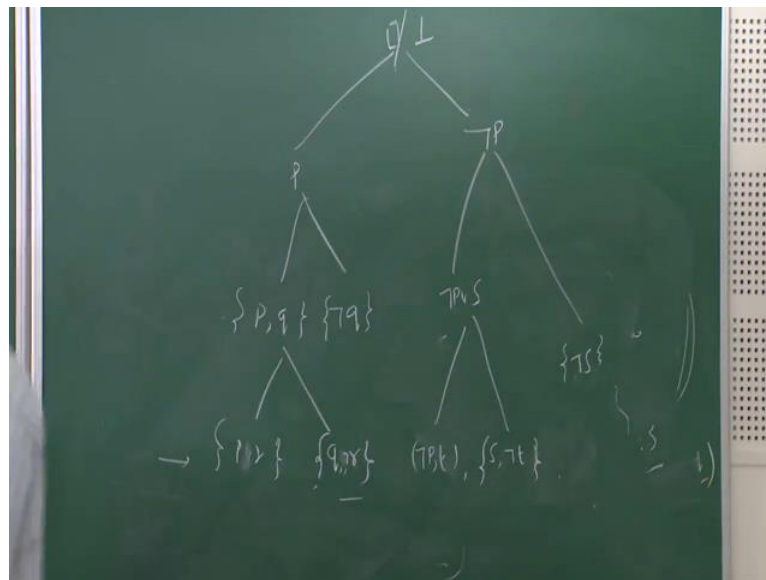 □/⊥
¬P
P
{P, q} {¬q}
¬P∨S
{¬S}
→ {P, r} {q, ¬r} (¬P, t), {S, ¬t}
S